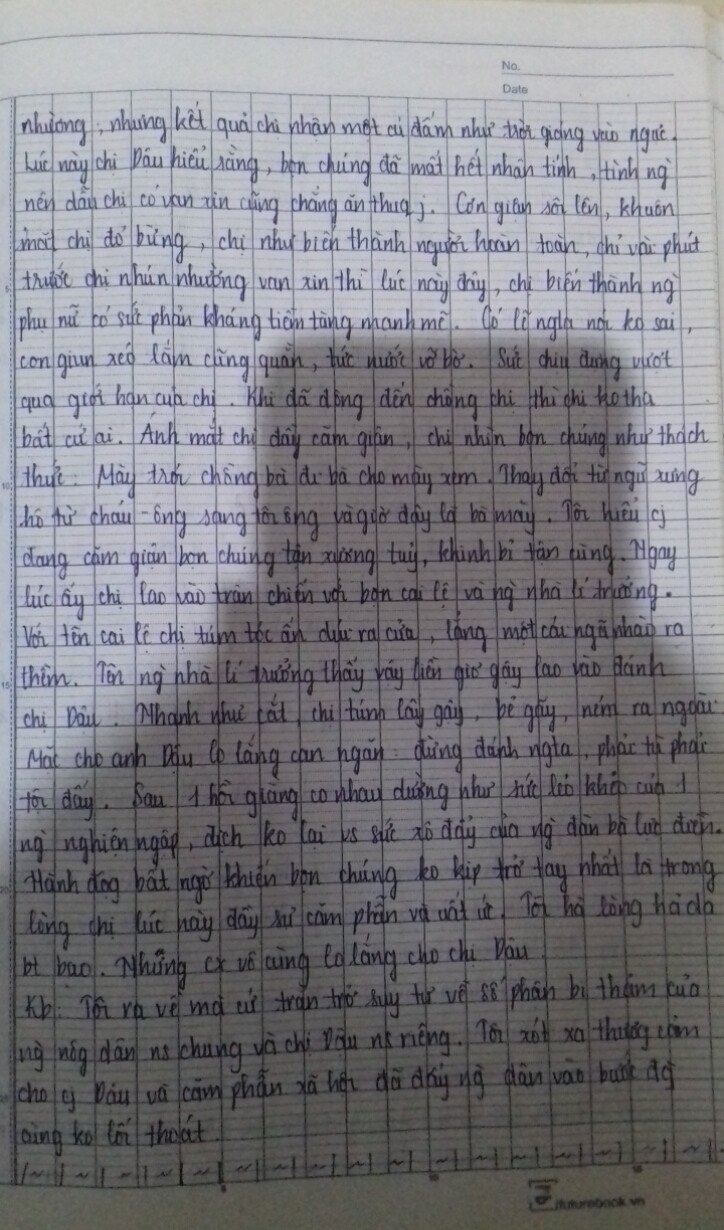 No.
Date
nhường, nhưng kết quả chị nhận một cú đấm như trời giáng vào ngực.
Lúc này chị Dậu hiểu rằng, bọn chúng đã mất hết nhân tính, tình ng
nên dẫu chị có van xin cũng chẳng ăn thua j. Cơn giận sôi lên, khuôn
mặt chị đỏ bừng, chị như biến thành người hoàn toàn, chỉ vài phút
trước chị nhún nhường van xin thì lúc này đây, chị biến thành ng
phụ nữ có sức phản kháng tiềm tàng mạnh mẽ. Có lẽ ngta nói ko sai,
con giun xéo lắm cũng quằn, tức nước vỡ bờ. Sức chịu đựng vượt
qua giới hạn của chị. Khi đã động đến chồng chị thì chị ko tha
bất cứ ai. Ánh mắt chị đầy căm giận, chị nhìn bọn chúng như thách
thức. Mày trói chồng bà đi bà cho mày xem. Thay đổi từ ngữ xưng
hô từ cháu - ông sang tôi ông và giờ đây là bà mày. Tôi hiểu cj
đang căm giận bọn chúng tận xương tuỷ, khinh bỉ tận cùng. Ngay
lúc ấy chị lao vào trận chiến với bọn cai lệ và ng nhà lí trưởng.
Với tên cai lệ chị túm tóc ấn dúi ra cửa, lẳng một cái ngã nhào ra
thềm. Tên ng nhà lí trưởng thấy vậy liền giơ gậy lao vào đánh
chị Dậu. Nhanh như cắt, chị túm lấy gậy, bẻ gãy, ném ra ngoài
Mặc cho anh Dậu lo lắng can ngăn: đừng đánh ngta, phải tù phải
tội đấy. Sau 1 hồi giằng co nhau dường như sức lẻo khẻo của 1
ng nghiện ngập, địch ko lại vs sức xô đẩy của ng đàn bà lực điền.
Hành động bất ngờ khiến bọn chúng ko kịp trở tay nhất là trong
lòng chị lúc này đầy sự căm phẫn và uất ức. Tôi hả lòng hả dạ
bt bao. Nhưng cx vô cùng lo lắng cho chị Dậu
Kb: Tôi ra về mà cứ trằn trở suy tư về số phận bi thảm của
ng nông dân ns chung và chị Dậu ns riêng. Tôi xót xa thương cảm
cho cj Dậu và căm phẫn xã hội đã đẩy ng dân vào bước đg
cùng ko lối thoát.
futurebook.vn